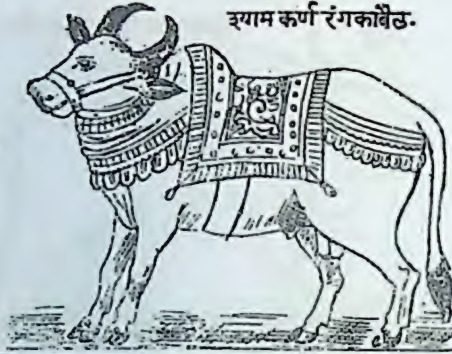 श्याम कर्ण रंगकाबैल.